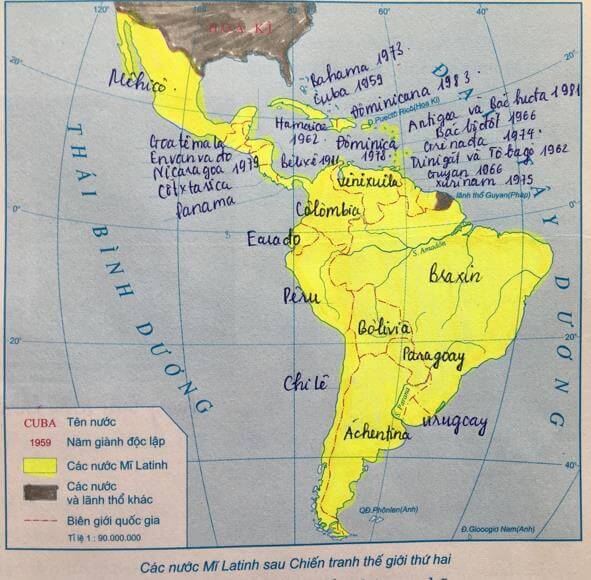 120°
80°
60°
40°
HOA KÌ
20°
20°
Bahama 1973
Cuba 1959
Mêhicô
Đominicana 1983
Đ. Puectô Ricô (Hoa Kì)
Hamaica
1962
Goatêmala
Envanvađo
Nicaragoa 1979
Côxtarica
Panama
Bêlixê 1981
Đôminica
1978
Antigoa và Bácbuđa 1981
Bácbađốt 1966
Grênada 1974
Triniđát và Tôbagô 1962
Guyan 1966
Xurinam 1975
lãnh thổ Guyan(Pháp)
Vênêxuêla
Côlômbia
0°
0°
Êcuađo
S. Amadôn
Braxin
Pêru
Bôlivia
20°
20°
Paragoay
Chilê
S. Parana
Urugoay
Áchentina
40°
QĐ.Phônlen(Anh)
Đ.Gioocgiô Nam(Anh)
THÁI BÌNH DƯƠNG
ĐẠI TÂY DƯƠNG
CUBA Tên nước
1959 Năm giành độc lập
Các nước Mĩ Latinh
Các nước
và lãnh thổ khác
Biên giới quốc gia
Tỉ lệ 1 : 90.000.000
Các nước Mĩ Latinh sau Chiến tranh thế giới thứ hai